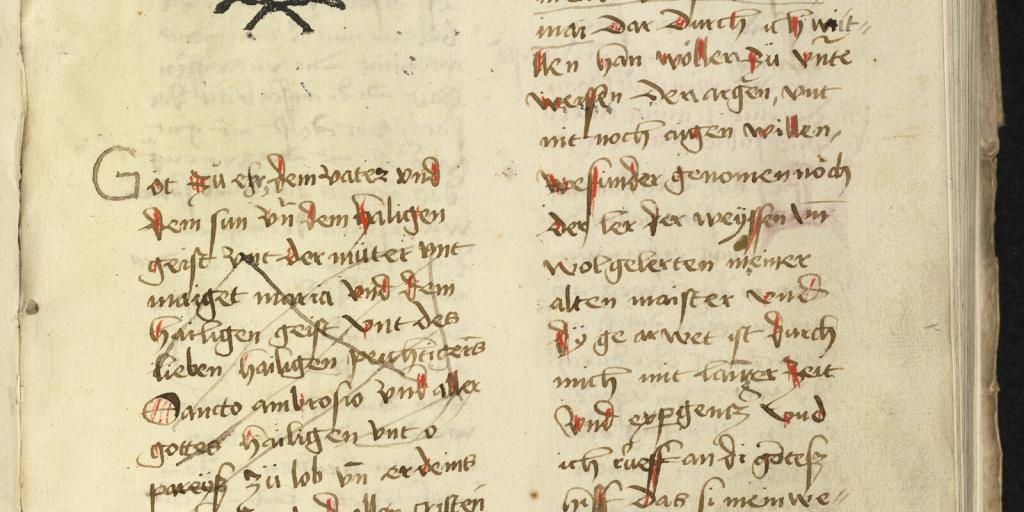 Got zü ehr dem vater vnd
dem sun vn̄ dem haligen
geist vnt der müter vnt
maiget maria vnd dem
hailigen geist vnt des
lieben hailigen peichtigers
Sancto ambrosio vnd aller
gottes hailigen vnt o
zü lob vn̄ er deins
allen cristen
mai dar durch ich wil-
llen han wöllen zü vn̄te
werffen der argen, vnt
nit noch aigen willen,
besunder genomen noch
der ler der weyssen vn̄
wolgelerten meiner
alten maister vnd
dÿ ge arwet ist durch
mich mit langer zeit
vnd
ich rüeff an di
hilf das si mein we-